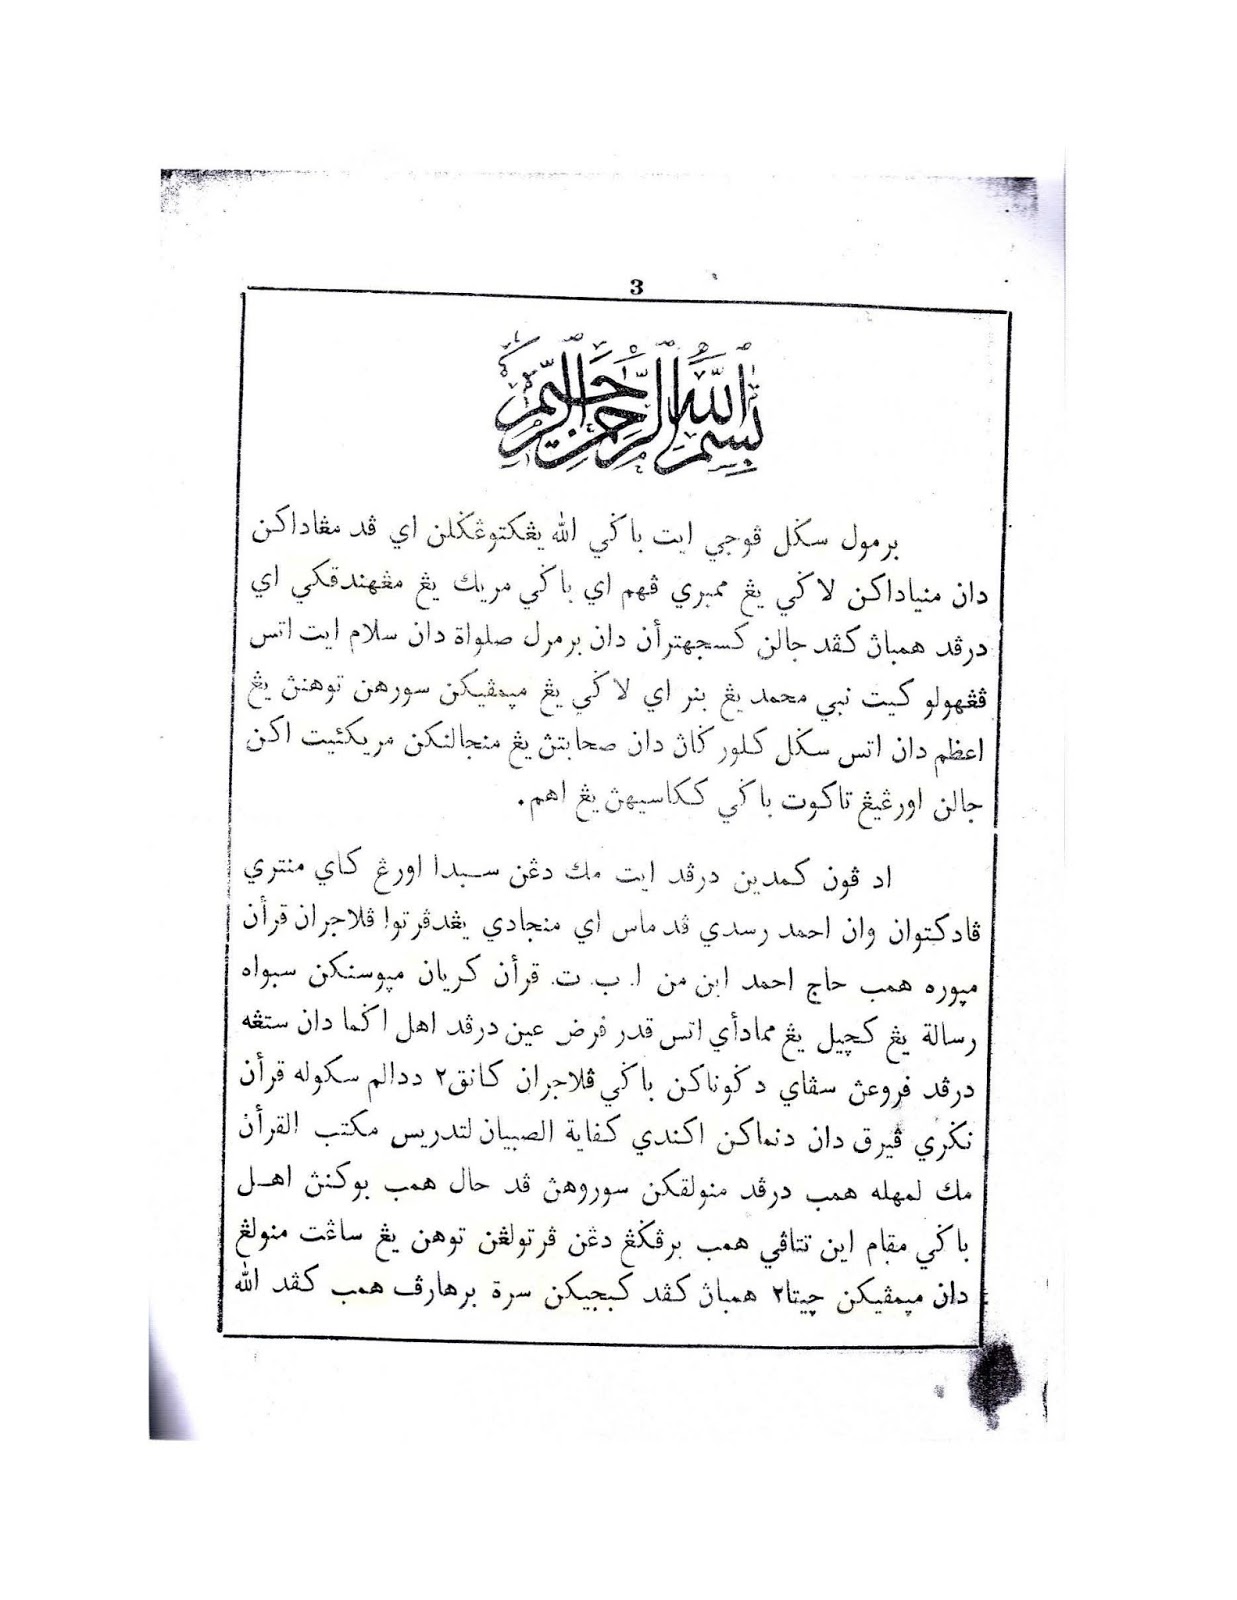 3
بسم الله الرحمن الرحيم
برمول سݢل ڤوجي ايت باݢي الله يڠكتوڠݢلن اي ڤد مڠاداكن
دان منياداكن لاݢي يڠ ممبري ڤهم اي باݢي مريك يڠ مڠهندقكي اي
درڤد همباڽ كڤد جالن كسجهترأن دان برمرل صلواة دان سلام ايت اتس
ڤڠهولو كيت نبي محمد يڠ بنر اي لاݢي يڠ مپمڤيكن سورهن توهنڽ يڠ
اعظم دان اتس سݢل كلورݢاڽ دان صحابتڽ يڠ منجالنكن مريكئيت اكن
جالن اورڠيڠ تاكوت باݢي ككاسيهڽ يڠ اهم.
اد ڤون كمدين درڤد ايت مك دڠن سبدا اورڠ كاي منتري
ڤادكتوان وان احمد رسدي ڤد ماس اي منجادي يڠدڤرتوا ڤلاجران قرأن
مپوره همب حاج احمد ابن من ا. ب. ت. قرأن كريان مپوسنكن سبواه
رسالة يڠ كچيل يڠ ممادأي اتس قدر فرض عين درڤد اهل اݢما دان ستڠه
درڤد فروعڽ سڤاي دݢوناكن باݢي ڤلاجران كانق٢ ددالم سكوله قرأن
نݢري ڤيرق دان دنماكن اكندي كفاية الصبيان لتدريس مكتب القرأن
مك لمهله همب درڤد منولقكن سوروهڽ ڤد حال همب بوكنڽ اهل
باݢي مقام اين تتاڤي همب برڤݢڠ دڠن ڤرتولڠن توهن يڠ ساڠت منولڠ
دان مپمڤيكن چيتا٢ همباڽ كڤد كبجيكن سرة برهارڤ همب كڤد الله